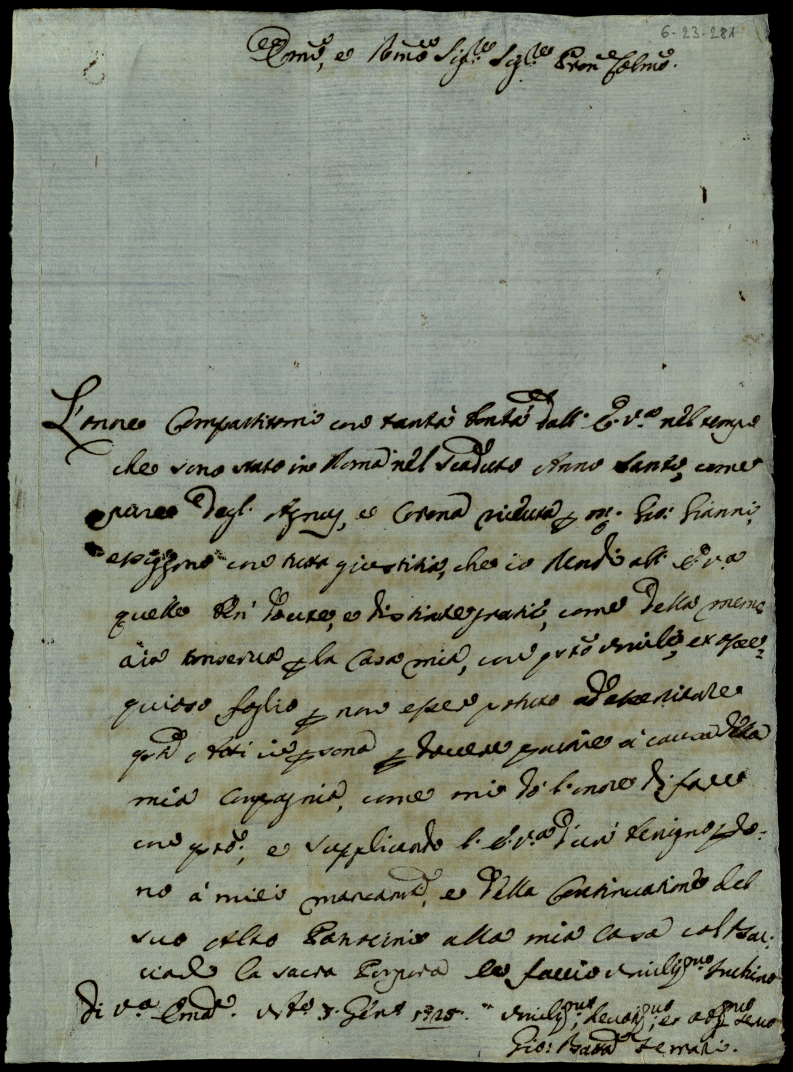 6-23-281
Em̃o, e Rm̃o Sig.re Sig.re Pron Colmo.
L'onore Compartitomi con tanta bontà dall' E. V.a nel tempo
che sono stato in Roma nel scaduto Anno Santo, come
pure degl. Agnus, e Corona riceuta p m. Gio: Gianni,
esiggono con tutta giustitia, che io rendi all' E. V.a
quelle ben douute, e distinte gratie, come della memo
ria conserua p la Casa mia, con q.to umile, et osse=
quioso foglio p non esser potuto
in p sona p douere partire à causa della
mia Compagnia, come mi dò l'onore di fare
con q.to, e supplicando l. E. V.a d'un benigno pdo=
no à miei mancam.ti, e della Continuatione del
suo Alto Patrocinio alla mia Casa col bac=
ciarle la sacra Porpora le faccio umiliss.mo Inchino
Di V.a Em.a 3 Gen.o umiliss.mo, deuotiss.mo, et oblig.mo seruo
Gio: Batta Ferrari.